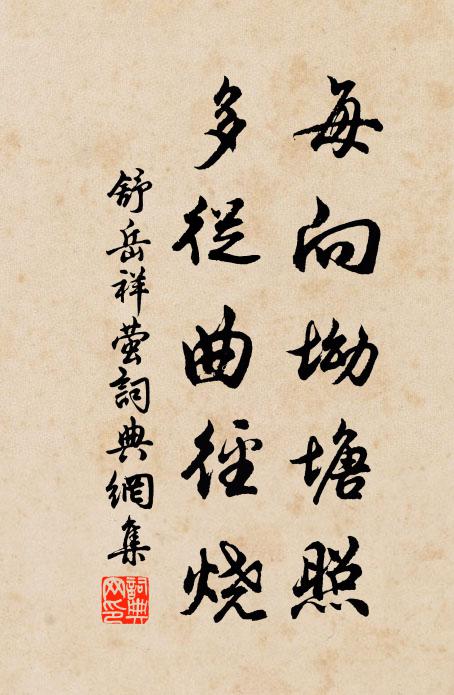 每向坳塘照
多從曲徑烧
舒岳祥萤詞典網集
詞典网印